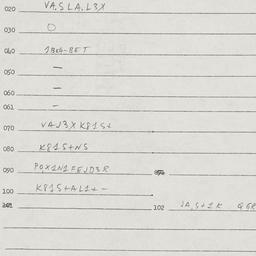 020 VA.SLA.L3X
030 O
040 1BX4-BET
050 —
060 —
061 -
070 VAJ3XK81S+
080 K81S+NS
090 PQX1N1FEJD3R
100 K81S+AL1+-
102 JA,S+1K